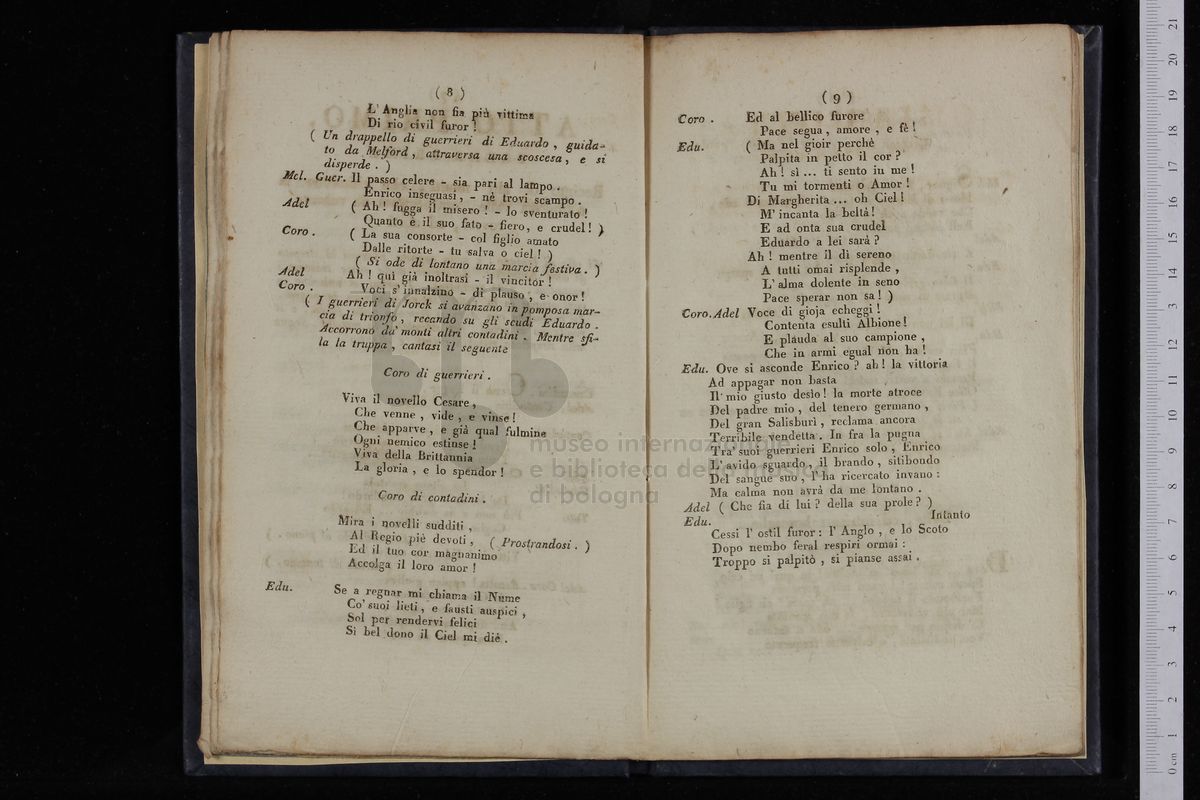 ( 8 )
L' Anglia non fia più vittima
Di rio civil furor !
( Un drappello di guerrieri di Eduardo , guida-
to da Melford , attraversa una scoscesa , e si
disperde . )
Mel. Guer. Il passo celere - sia pari al lampo .
Enrico inseguasi , - nè trovi scampo .
Adel ( Ah ! fugga il misero ! - lo sventurato !
Quanto è il suo fato - fiero, e crudel! )
Coro . ( La sua consorte - col figlio amato
Dalle ritorte - tu salva o ciel ! )
( Si ode di lontano una marcia festiva . )
Adel Ah ! quì già inoltrasi - il vincitor !
Coro . Voci s' innalzino - di plauso , e onor !
( I guerrieri di Jorck si avanzano in pomposa mar-
cia di trionfo , recando su gli scudi Eduardo .
Accorrono da' monti altri contadini . Mentre sfi-
la la truppa , cantasi il seguente
Coro di guerrieri .
Viva il novello Cesare ,
Che venne , vide , e vinse !
Che apparve , e già qual fulmine
Ogni nemico estinse !
Viva della Brittannia
La gloria , e lo spendor !
Coro di contadini .
Mira i novelli sudditi ,
Al Regio piè devoti , ( Prostrandosi . )
Ed il tuo cor magnanimo
Accolga il loro amor !
Edu. Se a regnar mi chiama il Nume
Co' suoi lieti , e fausti auspici ,
Sol per rendervi felici
Si bel dono il Ciel mi diè .
( 9 )
Coro . Ed al bellico furore
Pace segua , amore , e fè !
Edu. ( Ma nel gioir perchè
Palpita in petto il cor ?
Ah ! sì ... ti sento in me !
Tu mi tormenti o Amor !
Di Margherita ... oh Ciel !
M' incanta la beltà !
E ad onta sua crudel
Eduardo a lei sarà ?
Ah ! mentre il dì sereno
A tutti omai risplende ,
L' alma dolente in seno
Pace sperar non sa ! )
Coro.Adel Voce di gioja echeggi !
Contenta esulti Albione !
E plauda al suo campione ,
Che in armi egual non ha !
Edu. Ove si asconde Enrico ? ah ! la vittoria
Ad appagar non basta
Il mio giusto desìo ! la morte atroce
Del padre mio , del tenero germano ,
Del gran Salisburì , reclama ancora
Terribile vendetta . In fra la pugna
Tra' suoi guerrieri Enrico solo , Enrico
L' avido sguardo , il brando , sitibondo
Del sangue suo , l' ha ricercato invano :
Ma calma non avrà da me lontano .
Adel ( Che fia di lui ? della sua prole ? )
Edu. Intanto
Cessi l' ostil furor : l' Anglo , e lo Scoto
Dopo nembo feral respiri ormai :
Troppo si palpitò , si pianse assai .
museo internazionale
e biblioteca della musica
di bologna
0 cm 1 2 3 4 5 6 7 8 9 10 11 12 13 14 15 16 17 18 19 20 21